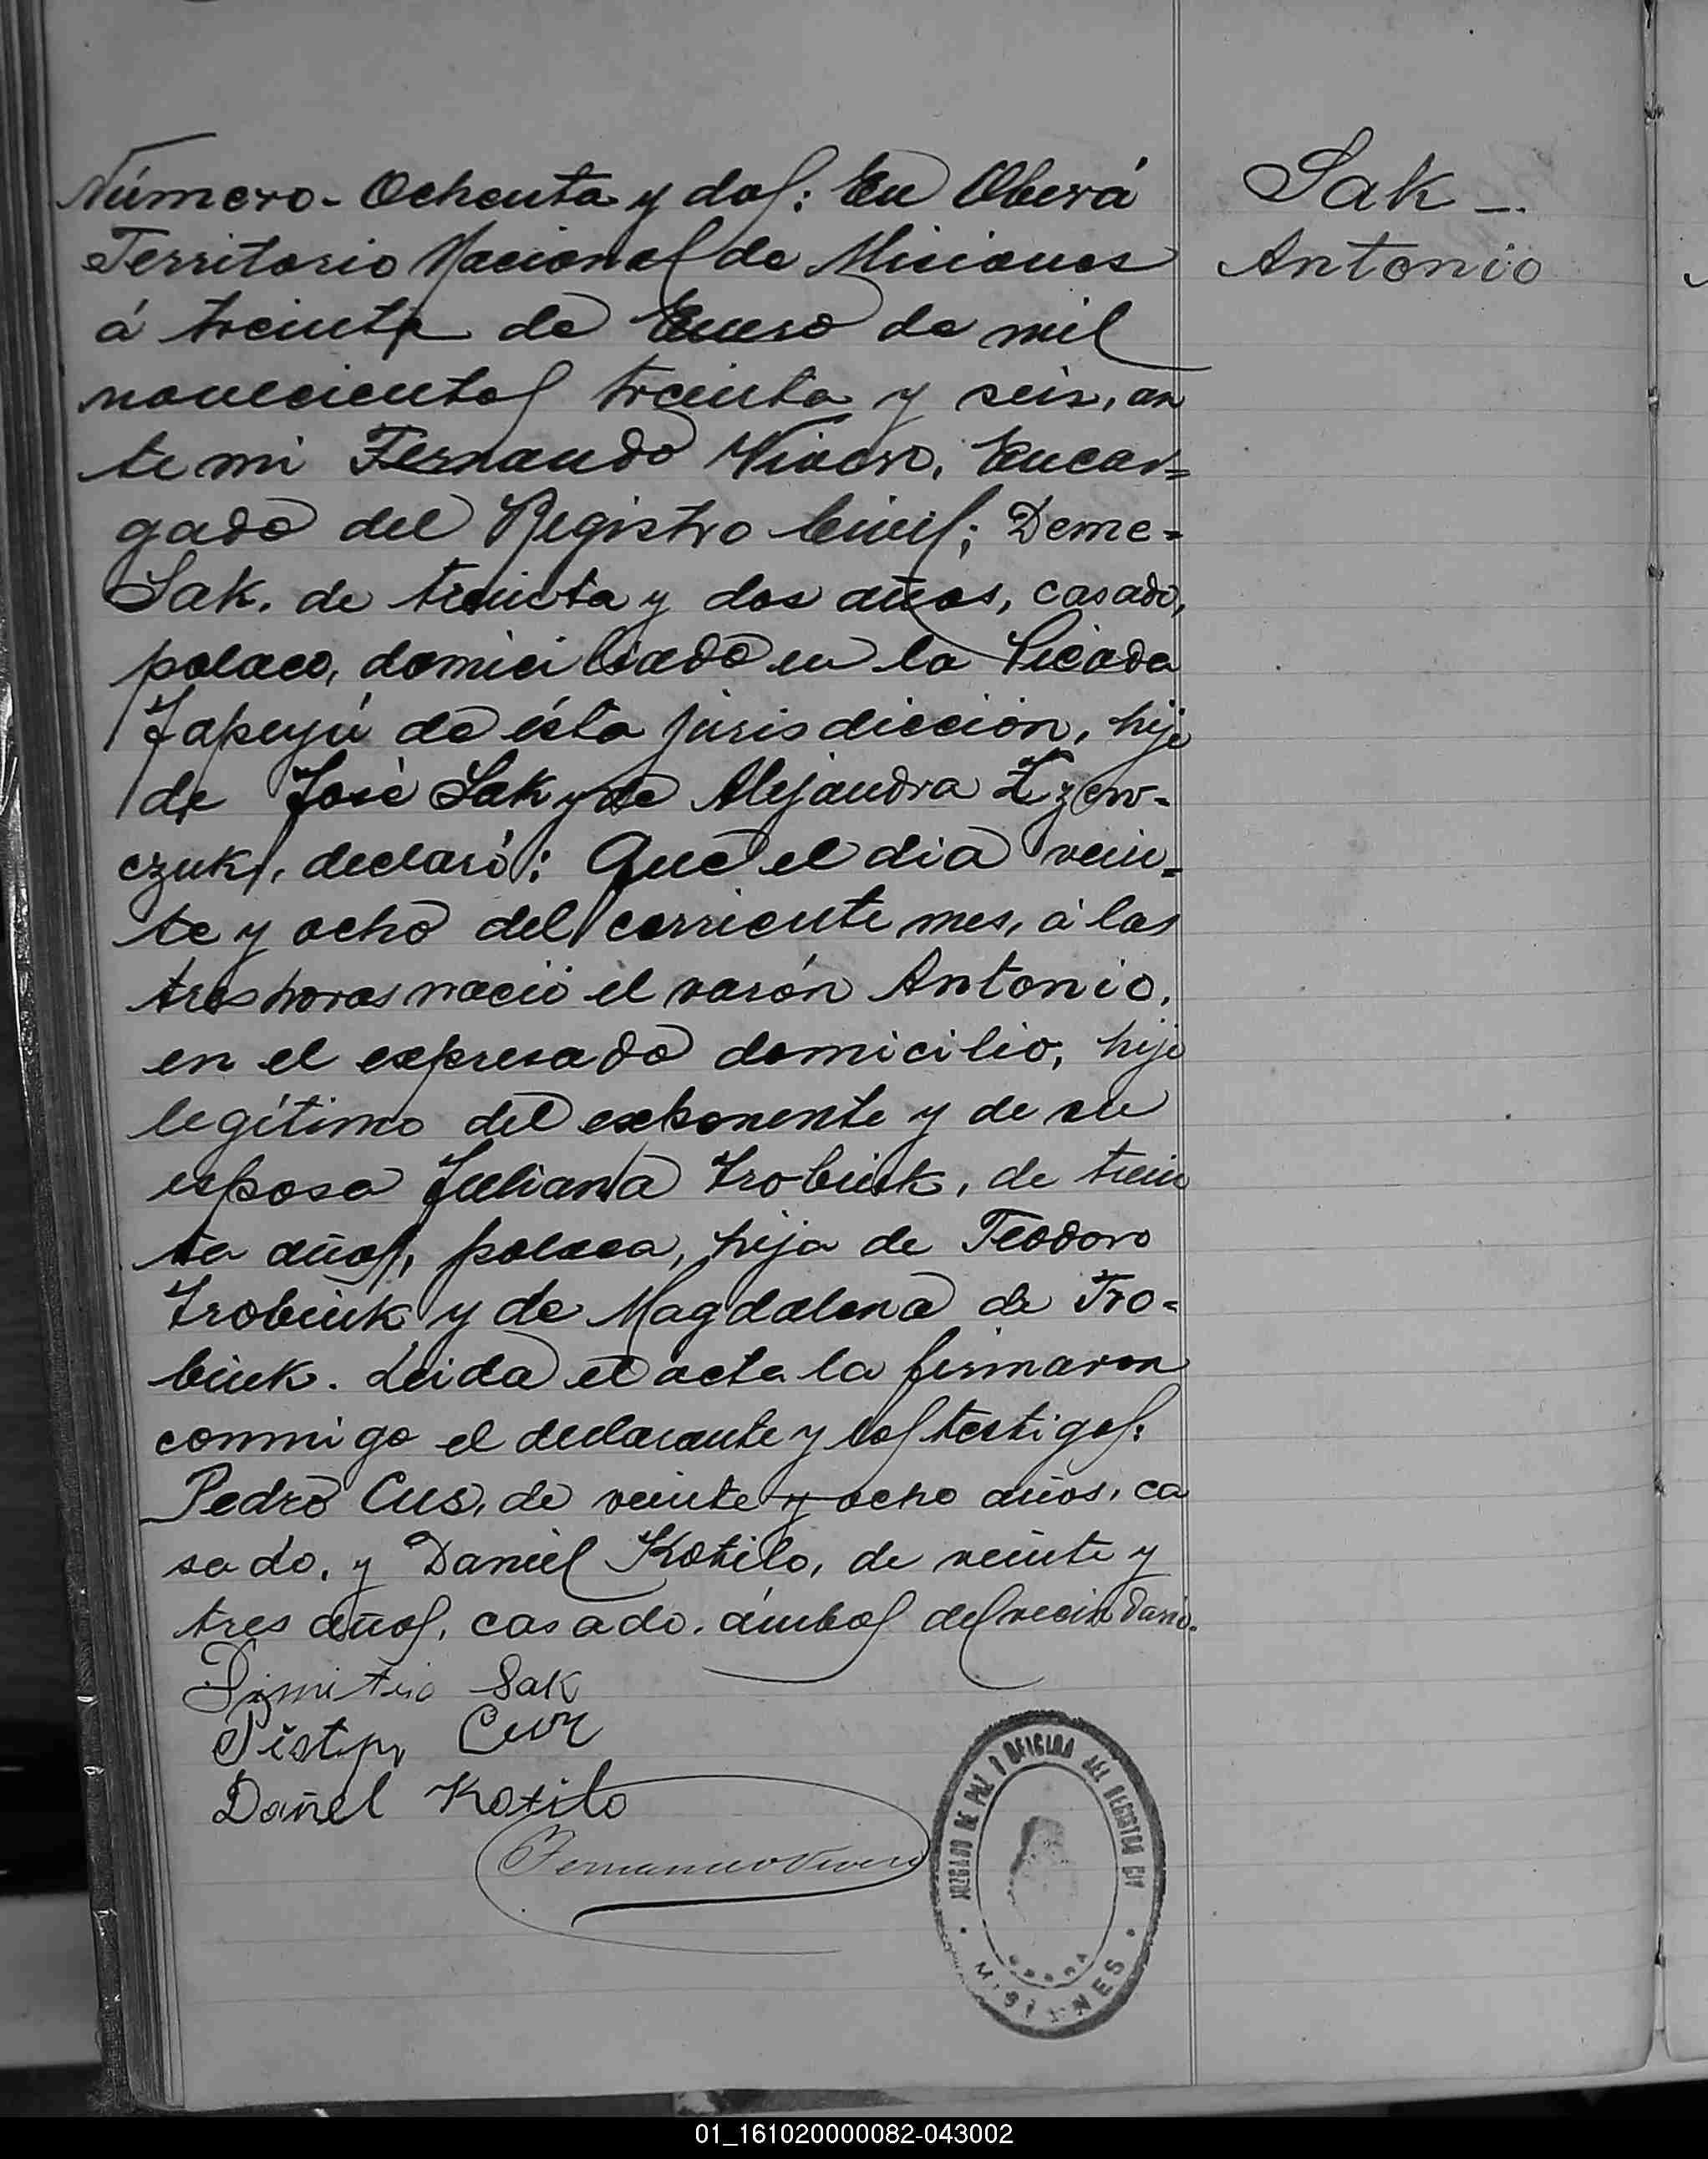 Número - Ochenta y dos: En Oberá
Territorio Nacional de Misiones
á treinta de Enero de mil
novecientos treinta y seis, an
te mi Fernando Vivero, Encar=
gado del Registro Civil; Deme=
Sak. de treinta y dos años, casado,
polaco, domiciliado en la Picada
Yapeyú de ésta jurisdicción, hijo
de José Sak y de Alejandra
czuk, declaró: Que el dia vein=
te y ocho del corriente mes, á las
tres horas nació el varón Antonio,
en el expresado domicilio, hijo
legítimo del exponente y de su
esposa Juliana Trobiuk, de trein
ta años, polaca, hija de Teodoro
Trobiuk y de Magdalena de Tro=
biuk. Leida el acta la firmaron
conmigo el declarante y los testigos:
Pedro Cus, de veinte y ocho años, ca
sado, y Daniel Kotilo, de veinte y
tres años, casado, ámbos del vecindario.
Dimitrio Sak
Dañel Kotilo
Fernando Vivero
Sak -.
Antonio
JUZGADO DE PAZ Y OFICINA DEL REGISTRO CIV
OBERA
MISIONES
01_161020000082-043002